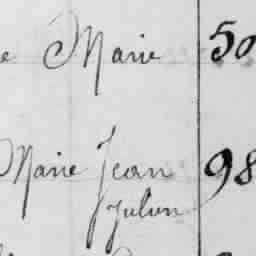 e Marie 50
Marie Jean 98
Julien